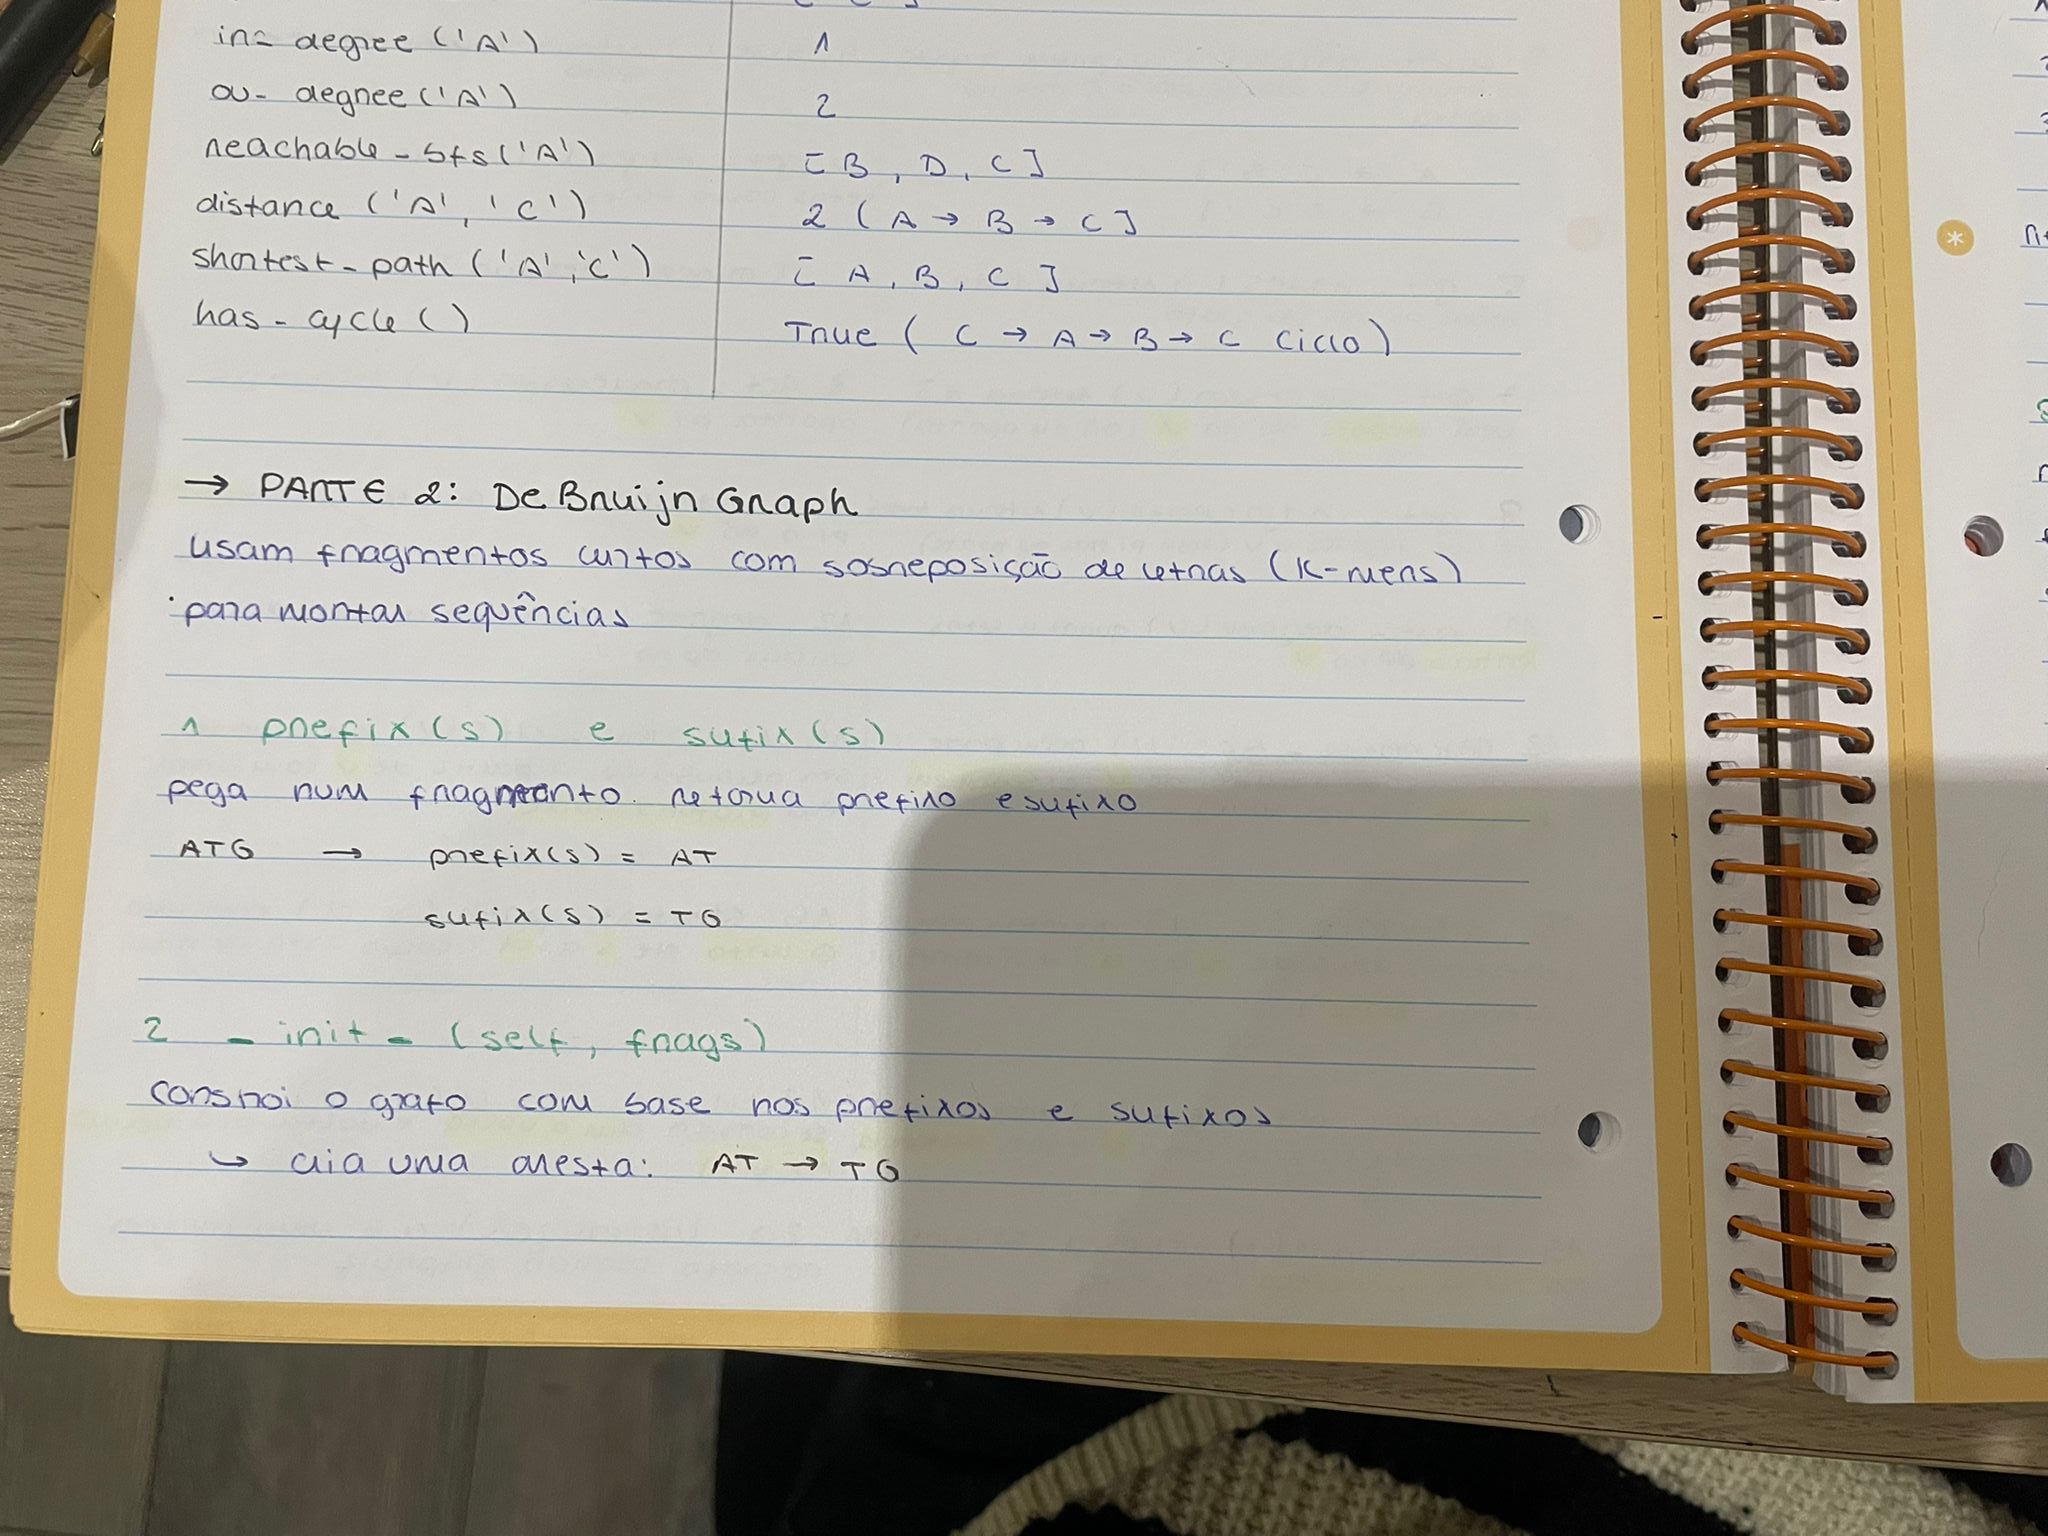 in- degree ('A') 1
ou- degree ('A') 2
reachable-bfs ('A') [B, D, C]
distance ('A', 'C') 2 (A → B → C]
shortest-path ('A','C') [A, B, C]
has-cycle () True (C → A → B → C ciclo)
→ PARTE 2: De Bruijn Graph
usam fragmentos curtos com sobreposição de letras (K-mers)
para montar sequências
1 prefix(s) e sufix(s)
pega num fragmento. retorna prefixo e sufixo
ATG → prefix(s) = AT
sufix(s) = TG
2 _init_ (self, frags)
constroi o grafo com base nos prefixos e sufixos
↳ cria uma aresta: AT → TG